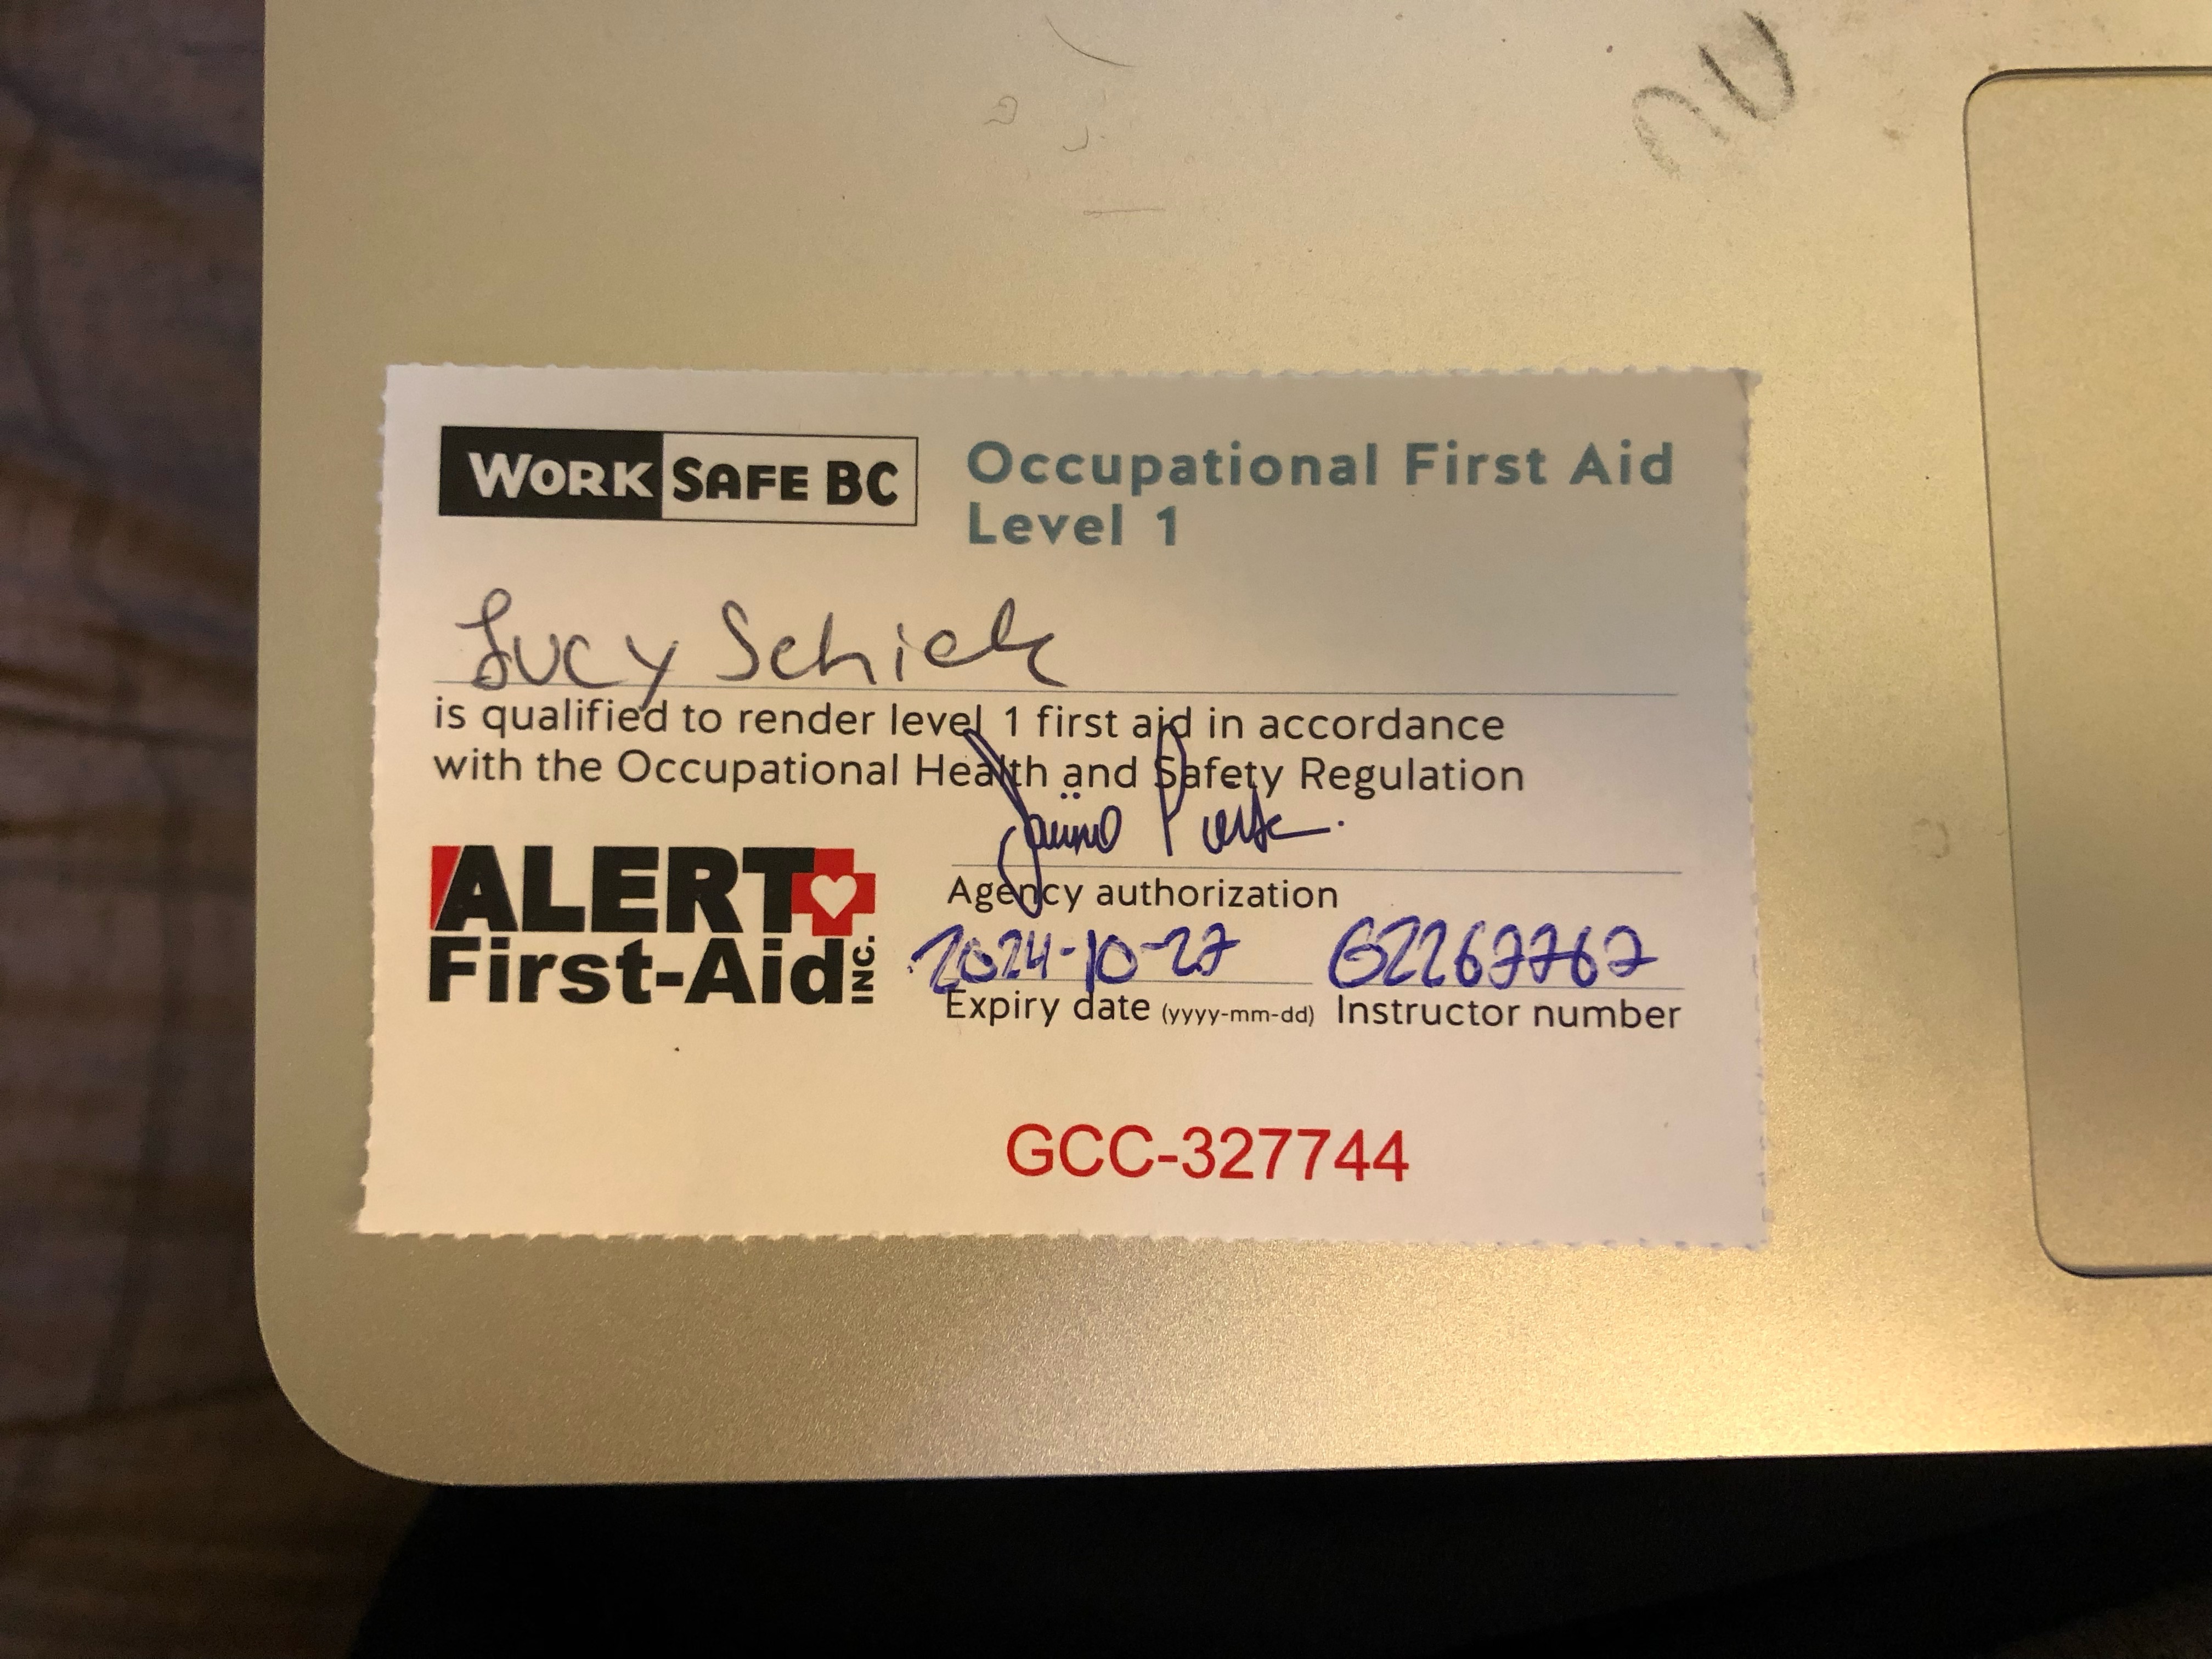 WORK SAFE BC
Occupational First Aid
Level 1
Lucy Schick
is qualified to render level 1 first aid in accordance
with the Occupational Health and Safety Regulation
ALERT
First-Aid INC.
Agency authorization
2024-10-27 G2267767
Expiry date (yyyy-mm-dd) Instructor number
GCC-327744